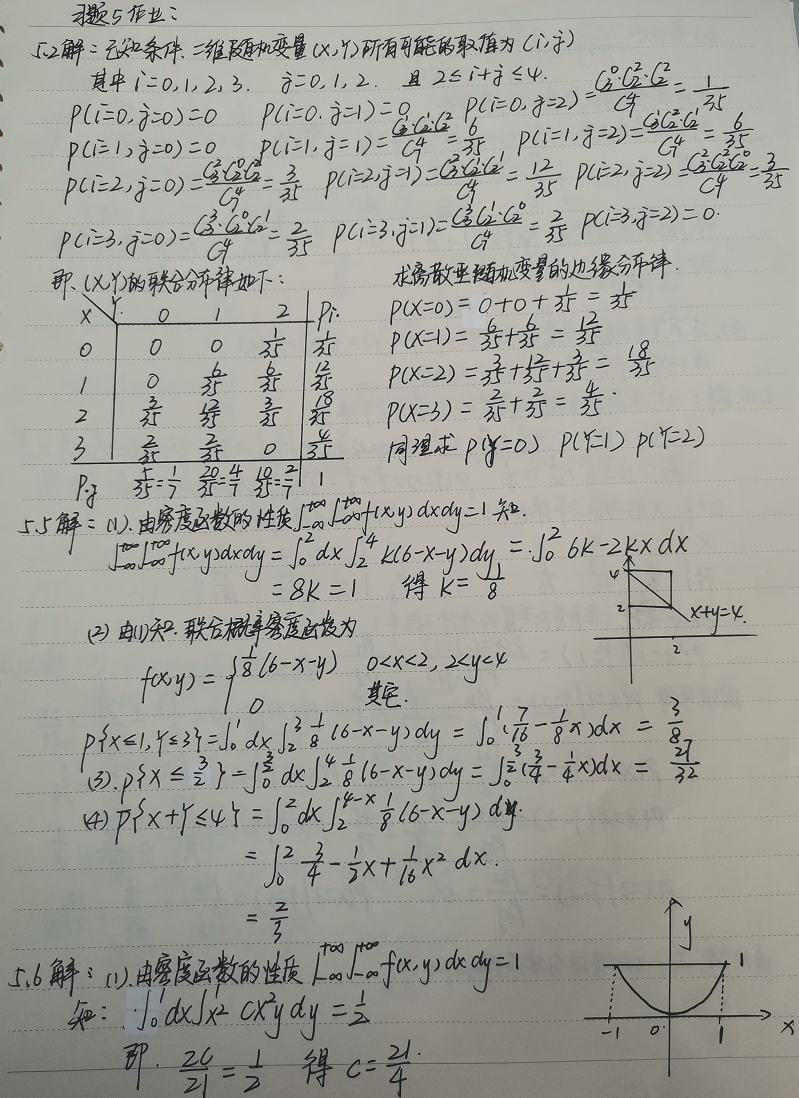 习题5作业：
5.2解：已知条件、二维随机变量(X,Y)所有可能的取值为(i,j)
其中i=0,1,2,3. j=0,1,2. 且2≤i+j≤4.
P(i=0,j=0)=0 P(i=0.j=1)=0 P(i=0,j=2)=C₃⁰·C₂²·C₂²/C₇⁴=1/35
P(i=1,j=0)=0 P(i=1,j=1)=C₃¹·C₂¹·C₂²/C₇⁴=6/35 P(i=1,j=2)=C₃¹C₂²·C₂¹/C₇⁴=6/35
P(i=2,j=0)=C₃²·C₂⁰C₂²/C₇⁴=3/35 P(i=2,j=1)=C₃²·C₂¹·C₂¹/C₇⁴=12/35 P(i=2,j=2)=C₃²·C₂²C₂⁰/C₇⁴=3/35
P(i=3,j=0)=C₃³·C₂⁰·C₂¹/C₇⁴=2/35 P(i=3,j=1)=C₃³C₂¹·C₂⁰/C₇⁴=2/35 P(i=3,j=2)=0.
即.(X,Y)的联合分布律如下： 求离散型随机变量的边缘分布律.
X Y 0 1 2 Pi·
0 0 0 1/35 1/35
1 0 6/35 6/35 12/35
2 3/35 12/35 3/35 18/35
3 2/35 2/35 0 4/35
P·j 5/35=1/7 20/35=4/7 10/35=2/7 1
P(X=0)=0+0+1/35=1/35
P(X=1)=6/35+6/35=12/35
P(X=2)=3/35+12/35+3/35=18/35
P(X=3)=2/35+2/35=4/35.
同理求 P(Y=0) P(Y=1) P(Y=2)
5.5解：(1).由密度函数的性质∫₋∞⁺∞∫₋∞⁺∞f(x,y)dxdy=1知.
∫₋∞⁺∞∫₋∞⁺∞f(x,y)dxdy=∫₀²dx∫₂⁴k(6-x-y)dy=∫₀²6k-2kx dx
=8k=1 得k=1/8
4
2
2
x+y=4.
(2) 由(1)知.联合概率密度函数为
f(x,y)={1/8(6-x-y) 0<x<2,2<y<4
0 其它.
P{X≤1,Y≤3}=∫₀¹dx∫₂³1/8(6-x-y)dy=∫₀¹(7/16-1/8x)dx=3/8
(3).P{X≤3/2}=∫₀^(3/2)dx∫₂⁴1/8(6-x-y)dy=∫₀^(3/2)(3/4-1/4x)dx=27/32
(4)P{X+Y≤4}=∫₀²dx∫₂⁴⁻ˣ1/8(6-x-y)dy.
=∫₀²3/4-1/2x+1/16x²dx.
=2/3
5.6解：(1).由密度函数的性质∫₋∞⁺∞∫₋∞⁺∞f(x,y)dxdy=1
知：∫₀¹dx∫x²¹cx²ydy=1/2
即.2c/21=1/2 得c=21/4.
y
1
-1
0
1
x